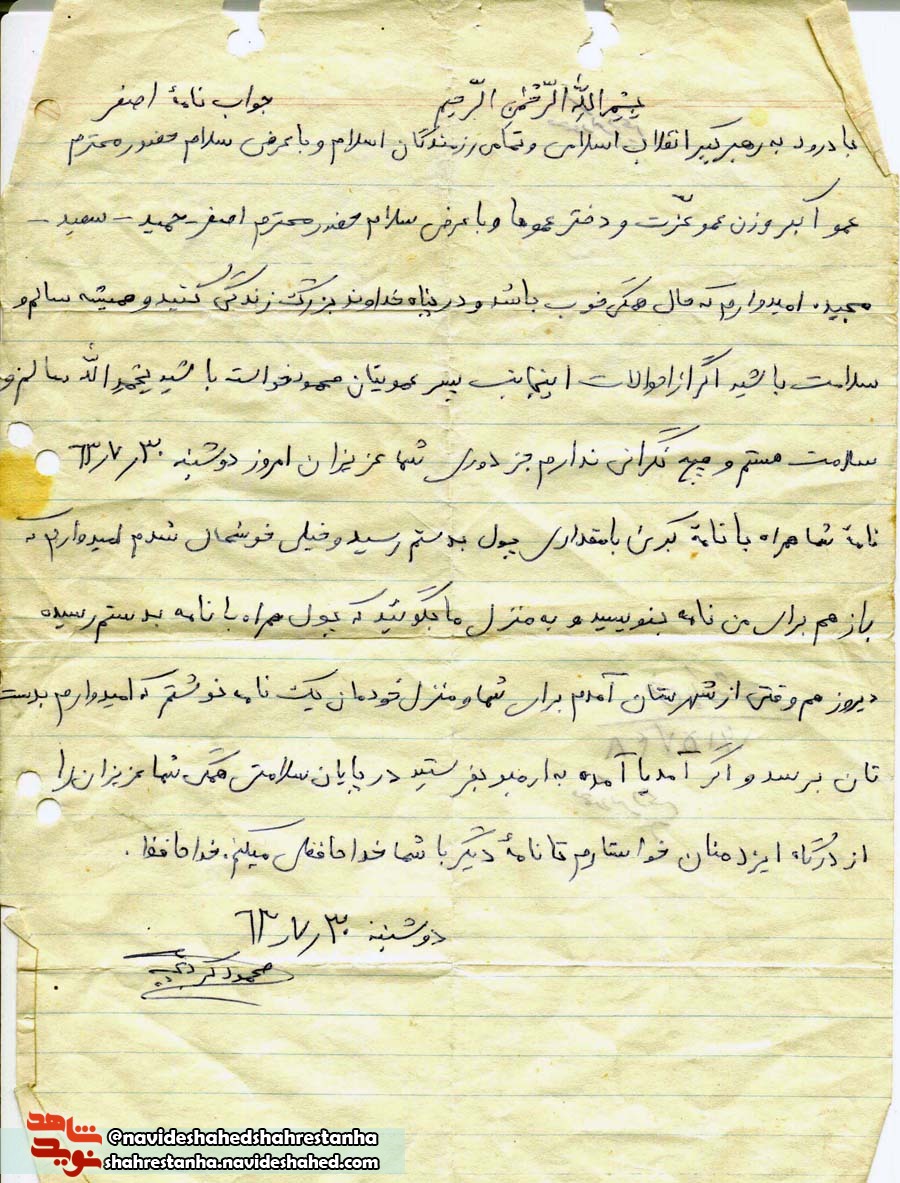 بِسْمِ اللهِ الرَّحْمنِ الرَّحيمِ
جواب نامهٔ اصغر
با درود به رهبر کبیر انقلاب اسلامی و تمامی رزمندگان اسلام و با عرض سلام حضور محترم
عمو اکبر و زن عمو عزّت و دختر عموها و با عرض سلام حضور محترم اصغر - حمید - سعید -
مجید. امیدوارم که حال همگی خوب باشد و در پناه خداوند بزرگ زندگی کنید و همیشه سالم و
سلامت باشید اگر از احوالات اینجانب پسر عمویتان محمود خواسته باشید بحمدِ اللهُ سالم و
سلامت هستم و هیچ نگرانی ندارم جز دوری شما عزیزان امروز دوشنبه ۶۳٫۷٫۳۰
نامهٔ شما همراه با نامهٔ کبری با مقداری پول بدستم رسید و خیلی خوشحال شدم امیدوارم که
باز هم برای من نامه بنویسید و به منزل ما بگوئید که پول همراه با نامه بدستم رسیده
دیروز هم وقتی از شهرستان آمدم برای شما و منزل خودمان یک نامه نوشتم که امیدوارم بدست
تان برسد و اگر آمد یا آمده به ارمبو بفرستید در پایان سلامتی همگی شما عزیزان را
از درگاه ایزد منان خواستارم تا نامهٔ دیگر با شما خداحافظی میکنم. خداحافظ.
دوشنبه ۶۳٫۷٫۳۰
محمود
شاهد
نوید
@navideshahedshahrestanha
shahrestanha.navideshahed.com